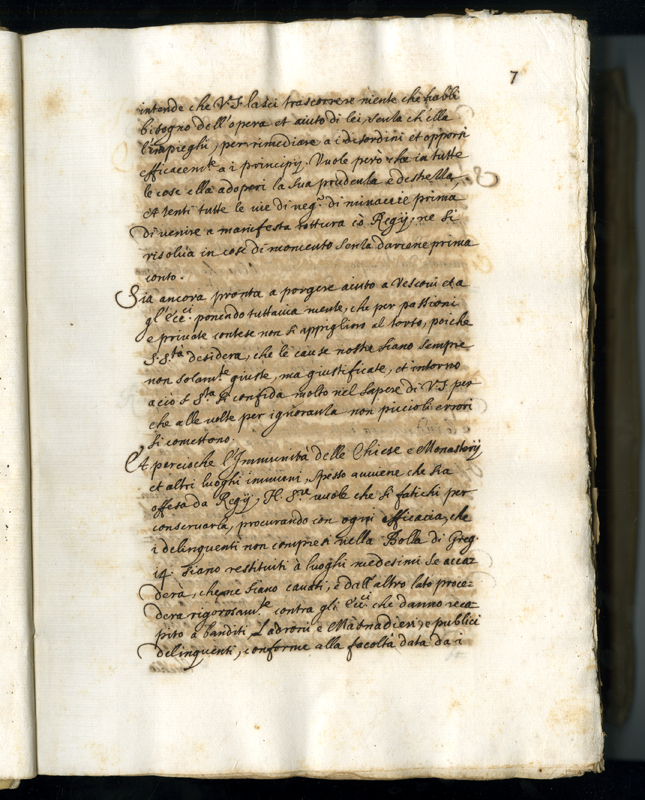 7
intende che V.S. lasci trascorrere niente che habbi
bisogno dell'opera et aiuto di lei senza ch'ella
l'impieghi, per rimediare a i disordini et opporsi
efficacem.te a i principij. Vuole però che in tutte
le cose ella adoperi la sua prudenza e destrezza,
et tenti tutte le vie di neg.º di minaccie prima
di venire a manifesta rottura cõ Regij, ne si
risolva in cose di momento senza darcene prima
conto.
Sia ancora pronta a porgere aiuto a Vescovi et a
gl'Ecc.ci ponendo tuttavia mente, che per passioni
e private contese non si appiglino al torto, poiche
S. S.tà desidera, che le cause nostre siano sempre
non solam.te giuste, ma giustificate, et intorno
acio S. S.tà si confida molto nel sapere di V.S. per
che alle volte per ignoranza non piccioli errori
si comettono.
Et percioche l'Immunità delle Chiese e Monasterij
et altri luoghi immuni, spesso avviene che sia
offesa da Regij, N. S.re vuole che si fatichi per
conservarla, procurando con ogni efficacia, che
i delinquenti non compresi nella Bolla di Greg.
14. siano restituiti à luoghi medesimi se acca=
derà, che ne siano cavati, e dall'altro lato proce=
derà rigorosam.te contra gli Ecc.ci che danno reca=
pito a banditi, Ladroni e Masnadieri, e publici
delinquenti, conforme alla facoltà data da i